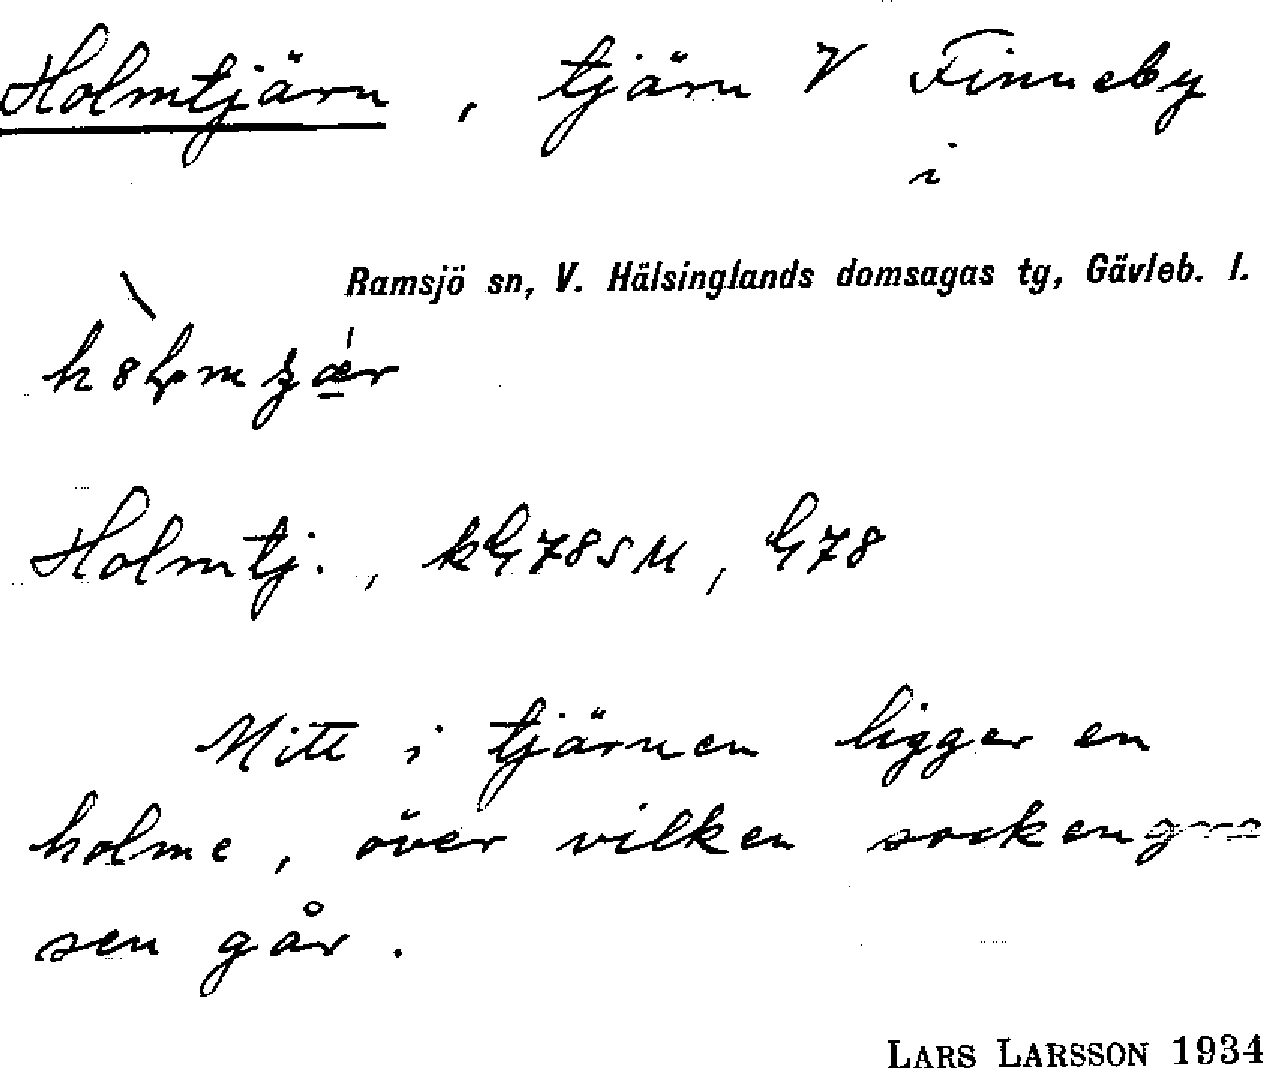 Holmtjärn, tjärn V Finneby
i
Ramsjö sn, V. Hälsinglands domsagas tg, Gävleb. l.
Holmtj., kG78SM, G78
Mitt i tjärnen ligger en
holme, över vilken sockengrän
sen går.
LARS LARSSON 1934